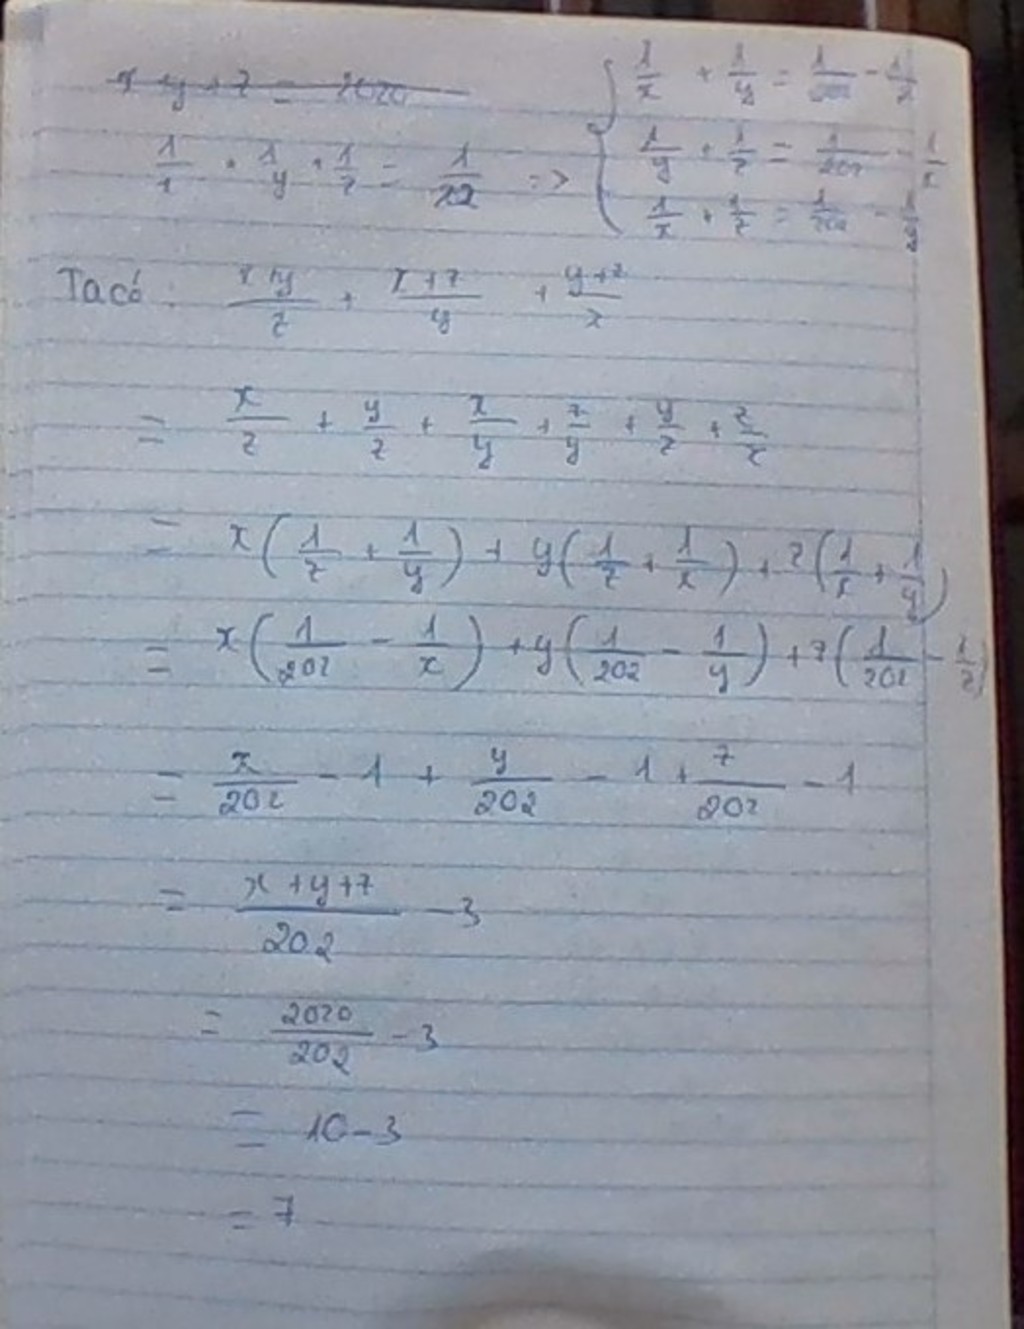 1/x + 1/y = 1/202 - 1/z
x + y + z = 2020
1/x + 1/y + 1/z = 1/202 => 1/y + 1/z = 1/202 - 1/x
1/x + 1/z = 1/202 - 1/y
Ta có: (x+y)/z + (x+z)/y + (y+z)/x
= x/z + y/z + x/y + z/y + y/x + z/x
= x(1/z + 1/y) + y(1/z + 1/x) + z(1/x + 1/y)
= x(1/202 - 1/x) + y(1/202 - 1/y) + z(1/202 - 1/z)
= x/202 - 1 + y/202 - 1 + z/202 - 1
= (x+y+z)/202 - 3
= 2020/202 - 3
= 10 - 3
= 7